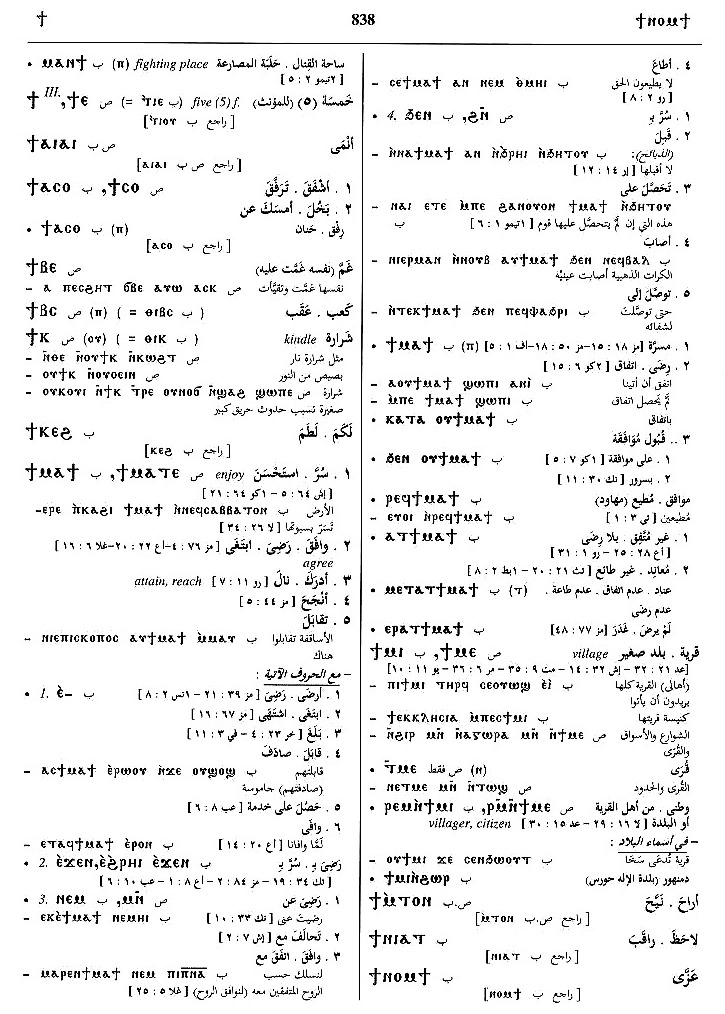 ϯ 838 ϯⲛⲟⲙϯ
• ⲙⲁⲛϯ ب (π) fighting place ساحة القتال . حَلَبة المصارعة
[٢تيمو ٢ : ٥]
ϯ III. ,ϯⲉ ص (= ²ϯⲓⲉ ب) five (5) f. خمسَة (٥) (للمؤنث)
[راجع ب ²ϯⲓⲟⲩ]
ϯⲁⲓⲁⲓ ص ب أنْمَى
[راجع ص ب ⲁⲓⲁⲓ]
ϯⲁⲥⲟ ب, ϯⲥⲟ ص ١ . أشْفَقَ . تَرَفَّقَ
٢ . بَخُلَ . أمسَكَ عن
• ϯⲁⲥⲟ ب (π) رِفق . حَنان
[راجع ب ⲁⲥⲟ]
ϯⲃⲉ ص غَمَّ (نفسه غَمَّت عليه)
– ⲁ ⲡⲉⲥϩⲏⲧ ϭⲃⲉ ⲁⲩⲱ ⲁⲥⲕ ص نفسها غمَّت وتقيَّأت
ϯⲃⲥ ص (π) ( = ⲑⲓⲃⲥ ب ) كَعب . عَقَب
ϯⲕ ص (ⲟⲩ) ( = ⲑⲓⲕ ب ) kindle شَرارة
– ⲛ̀ⲑⲉ ⲛⲟⲩϯⲕ ⲛ̀ⲕⲱϩⲧ ص مثل شرارة نار
– ⲟⲩϯⲕ ⲛ̀ⲟⲩⲟⲉⲓⲛ ص بصيص من النور
– ⲟⲩⲕⲟⲩⲓ ⲛ̀ϯⲕ ϯⲣⲉ ⲟⲩⲛⲟϭ ⲛ̀ϣⲁϩ ϣⲱⲡⲉ ص شرارة
صغيرة تسبب حدوث حريق كبير
ϯⲕⲉϩ ب لَكَمَ . لَطَمَ
[راجع ب ⲕⲉϩ]
ϯⲙⲁϯ ب ,ϯⲙⲁⲧⲉ ص enjoy ١ . سُرَّ . استَحْسَنَ
[إش ٦٤ : ٥ – ١كو ٦٤ : ٢١]
–ⲉⲣⲉ ⲡ̀ⲕⲁϩⲓ ϯⲙⲁϯ ⲛ̀ⲛⲉϥⲥⲁⲃⲃⲁⲧⲟⲛ ب الأرض
تُسَرّ بسبوتها [لا ٢٦ : ٣٤]
٢ . وافَقَ . رَضِيَ . ابتَغَى [مز ٧٦ : ٤–أع ٢٢ : ٢٠–غلا ٦ : ١٦]
agree
٣ . أدرَكَ . نالَ [رو ١١ : ٧] attain, reach
٤ . أنْجَحَ [مز ٤٤ : ٥]
٥ . تقابَلَ
– ⲛⲓⲉⲡⲓⲥⲕⲟⲡⲟⲥ ⲁⲩϯⲙⲁϯ ⲙ̀ⲙⲁⲩ ب الأساقفة تقابلوا
هناك
– مع الحروف الآتية :
• 1. ⲉ̀– ب ١ . أرضَى . رَضِيَ [مز ٣٩ : ٢١ –١تس ٢ : ٨]
٢ . ابتَغَى . اشتَهَى [مز ٦٧ : ١٦]
٣ . بَلَغَ [حز ٢٣ : ٤ – في ٣ : ١١]
٤ . قابَلَ . صادَفَ
– ⲁⲥϯⲙⲁϯ ⲉ̀ⲣⲱⲟⲩ ⲛ̀ϫⲉ ⲟⲩϣⲟϣ ب قابلتهم
(صادفتهم) جاموسة
٥ . حَصَلَ على خدمة [عب ٨ : ٦]
٦ . وافَى
– ⲉⲧⲁϥϯⲙⲁϯ ⲉ̀ⲣⲟⲛ ب لمَّا وافانا [أع ٢٠ : ١٤]
• 2. ⲉ̀ϫⲉⲛ,ⲉ̀ϩⲣⲏⲓ ⲉ̀ϫⲉⲛ ب رَضِيَ بِـ . سُرَّ بِـ
[تك ٣٤ : ١٩ – مز ٨٤ : ٢ – أع ٨ : ١ – عب ١٠ : ٦]
• 3. ⲛⲉⲙ ب ,ⲙⲛ̄ ص ١ . رَضِيَ عن
– ⲉⲕⲉ̀ϯⲙⲁϯ ⲛⲉⲙⲏⲓ ب رضيتَ عنى [تك ٣٣ : ١٠]
٢ . تَحالَفَ مع [إش ٧ : ٢]
٣ . وافَقَ . اتَّفَقَ مع
– ⲙⲁⲣⲉⲛϯⲙⲁϯ ⲛⲉⲙ ⲡⲓⲡ̅ⲛ̅ⲁ̅ ب لنسلك حسب
الروح المتفقين معه (لنوافق الروح) [غلا ٥ : ٢٥]
٤ . أطاعَ
– ⲥⲉϯⲙⲁϯ ⲁⲛ ⲛⲉⲙ ⲑⲙⲏⲓ ب لا يطيعون الحق
[رو ٢ : ٨]
• 4. ϧⲉⲛ ب ,ϩⲛ̄ ص ١ . سُرَّ بِـ
٢ . قَبِلَ
– ⲛ̀ⲛⲁϯⲙⲁϯ ⲁⲛ ⲛ̀ϧⲣⲏⲓ ⲛ̀ϧⲏⲧⲟⲩ ب (الذبائح):
لا أقبلها [إر ١٤ : ١٢]
٣ . تَحَصَّلَ على
– ⲛⲁⲓ ⲉⲧⲉ ⲙ̀ⲡⲉ ϩⲁⲛⲟⲩⲟⲛ ϯⲙⲁϯ ⲛ̀ϧⲏⲧⲟⲩ
ب هذه التي إن لم يتحصل عليها قوم [١تيمو ١ : ٦]
٤ . أصابَ
– ⲛⲓⲉⲣⲙⲁⲛ ⲛ̀ⲛⲟⲩⲃ ⲁⲩϯⲙⲁϯ ϧⲉⲛ ⲛⲉϥⲃⲁⲗ ب
الكرات الذهبية أصابت عينيَّه
٥ . توصَّلَ إلى
– ⲛ̀ⲧⲉⲕϯⲙⲁϯ ϧⲉⲛ ⲡⲉϥⲫⲁϧⲣⲓ ب حتى توصَّلتَ
لشفائه
• ϯⲙⲁϯ ب (π) ١ . مسرَّة [مز ١٨ : ١٥–مز ٥٠ : ١٨–أف ١ : ٥]
٢ . رِضَى . اتفاق [٢كو ٦ : ١٥]
– ⲁⲟⲩϯⲙⲁϯ ϣⲱⲡⲓ ⲁⲛⲓ̀ ب اتفق أن أتينا
– ⲙ̀ⲡⲉ ϯⲙⲁϯ ϣⲱⲡⲓ ب لم يحصل اتفاق
• ⲕⲁⲧⲁ ⲟⲩϯⲙⲁϯ ب باتفاق
٣ .. قُبول مُوافَقَة
• ϧⲉⲛ ⲟⲩϯⲙⲁϯ ب ١ . على موافقة [١كو ٧ : ٥]
٢ . بسرور [تك ٣٠ : ١١]
• ⲣⲉϥϯⲙⲁϯ ب موافق . مُطيع (مهاود)
– ⲉⲧⲟⲓ ⲛ̀ⲣⲉϥϯⲙⲁϯ ب مُطيعين [تي ٣ : ١]
• ⲁⲧϯⲙⲁϯ ب ١ . غير مُتَّفِق . بلا رِضَى
[أع ٢٨ : ٢٥ – رو ١ : ٣١]
٢ . مُعانِد . غير طائع [تث ٢١ : ٢٠ – ١بط ٢ : ٨]
• ⲙⲉⲧⲁⲧϯⲙⲁϯ ب (ϯ) عناد . عدم اتفاق . عدم طاعة .
عدم رضى
• ⲉⲣⲁⲧϯⲙⲁϯ ب لَمْ يرضَ . غَدَرَ [مز ٧٧ : ٤٨]
ϯⲙⲓ ب ,ϯⲙⲉ ص village قرية . بلد صغير
[عد ٢١ : ٣٢ – إش ٣٢ : ١٤ – مت ٩ : ٣٥ – مر ٦ : ٣٦ – يو ١١ : ١٠]
– ⲡⲓϯⲙⲓ ⲧⲏⲣϥ ⲥⲉⲟⲩⲱϣ ⲉ̀ⲓ̀ ب (أهالى) القرية كلها
يريدون أن يأتوا
– ϯⲉⲕⲕⲗⲏⲥⲓⲁ ⲙ̀ⲡⲉⲥϯⲙⲓ ب كنيسة قريتها
– ⲛ̄ϩⲓⲣ ⲙⲛ̄ ⲛ̀ⲁⲅⲱⲣⲁ ⲙⲛ̄ ⲛ̀ϯⲙⲉ ص الشوارع والأسواق
والقُرَى
• ϯⲙⲉ (ⲛ) ص فقط قُرَى
– ⲛⲉϯⲙⲉ ⲙⲛ̄ ⲛ̀ⲧⲱϣ ص القُرَى والحدود
• ⲣⲉⲙⲛ̀ϯⲙⲓ ب,ⲣⲙ̄ⲛ̄ϯⲙⲉ ص وطنى . من أهل القرية
villager, citizen أو البلدة [لا ١٦ : ٢٩ – عد ١٥ : ٣٠]
– في أسماء البلاد :
– ⲟⲩϯⲙⲓ ϫⲉ ⲥⲉⲛϧⲱⲟⲩⲧ ب قرية تُدعَى سَخا
• ϯⲙⲓⲛ̀ϩⲱⲣ ب دمنهور (بلدة الإله حورس)
ϯⲙ̀ⲧⲟⲛ ص.ب أراحَ . نَيَّحَ
[راجع ص.ب ⲙ̀ⲧⲟⲛ]
ϯⲛⲓⲁⲧ ب لاحَظَ . راقَبَ
[راجع ب ⲛⲓⲁⲧ]
ϯⲛⲟⲙϯ ب عَزَّى
[راجع ب ⲛⲟⲙϯ]